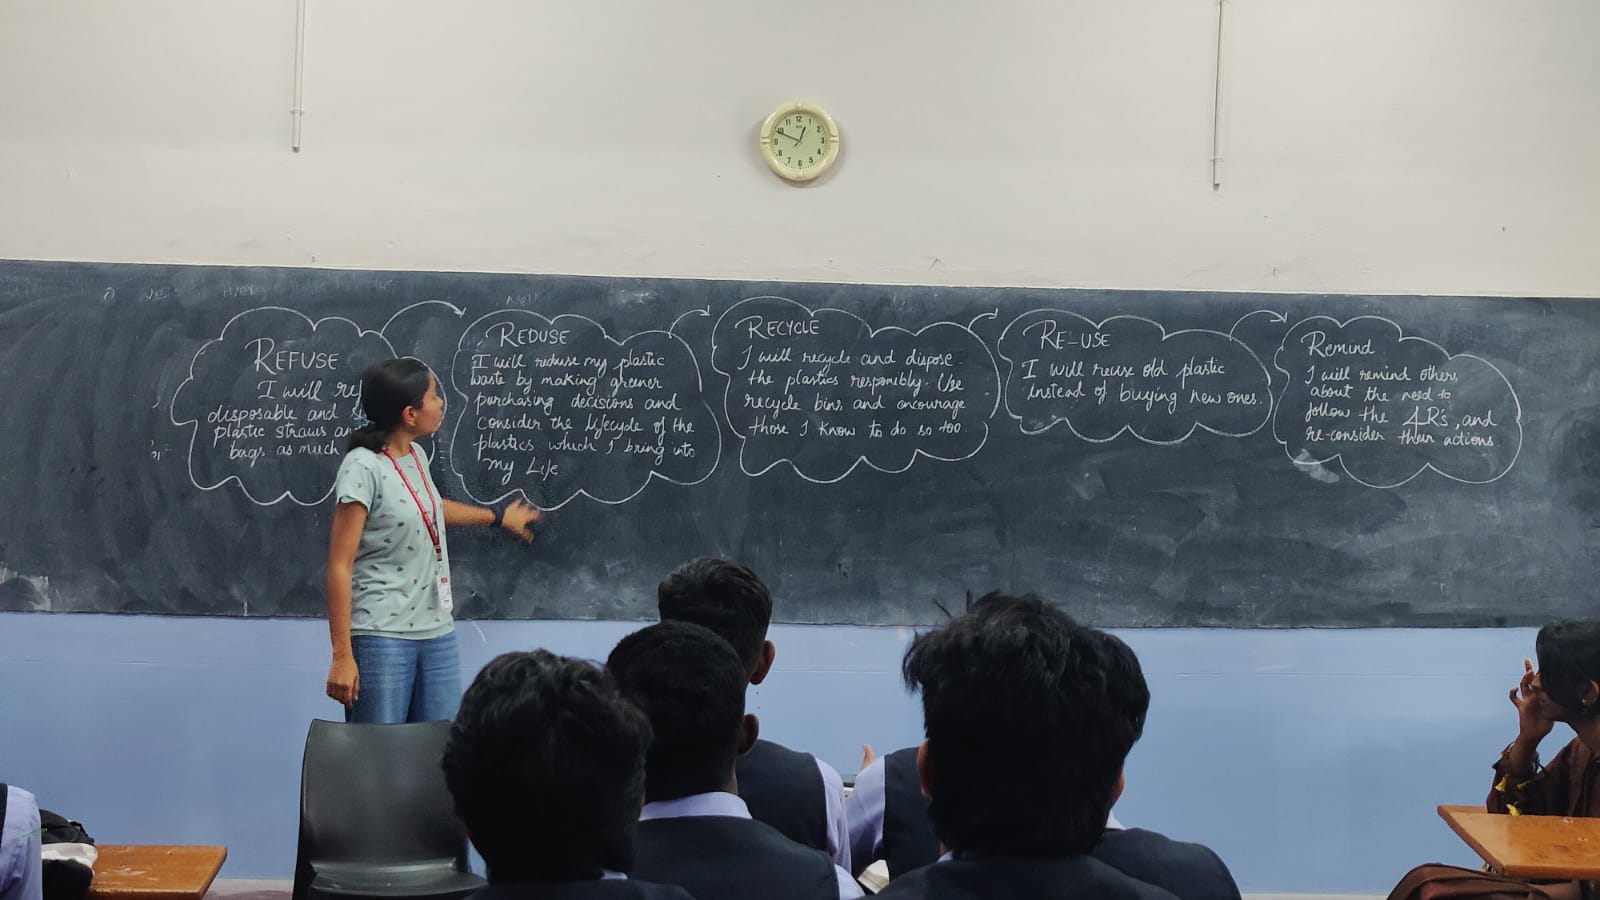 REFUSE
I will
disposable and
plastic straws
bags as much
REDUSE
I will reduse my plastic
waste by making greener
purchasing decisions and
consider the lifecycle of the
plastics which I bring into
my Life
RECYCLE
I will recycle and dispose
the plastics responsibly. Use
recycle bins and encourage
those I know to do so too
RE-USE
I will reuse old plastic
instead of buying new ones.
Remind
I will remind others
about the need to
follow the 4R's, and
re-consider their actions.
12
1
2
3
4
5
6
7
8
9
10
11